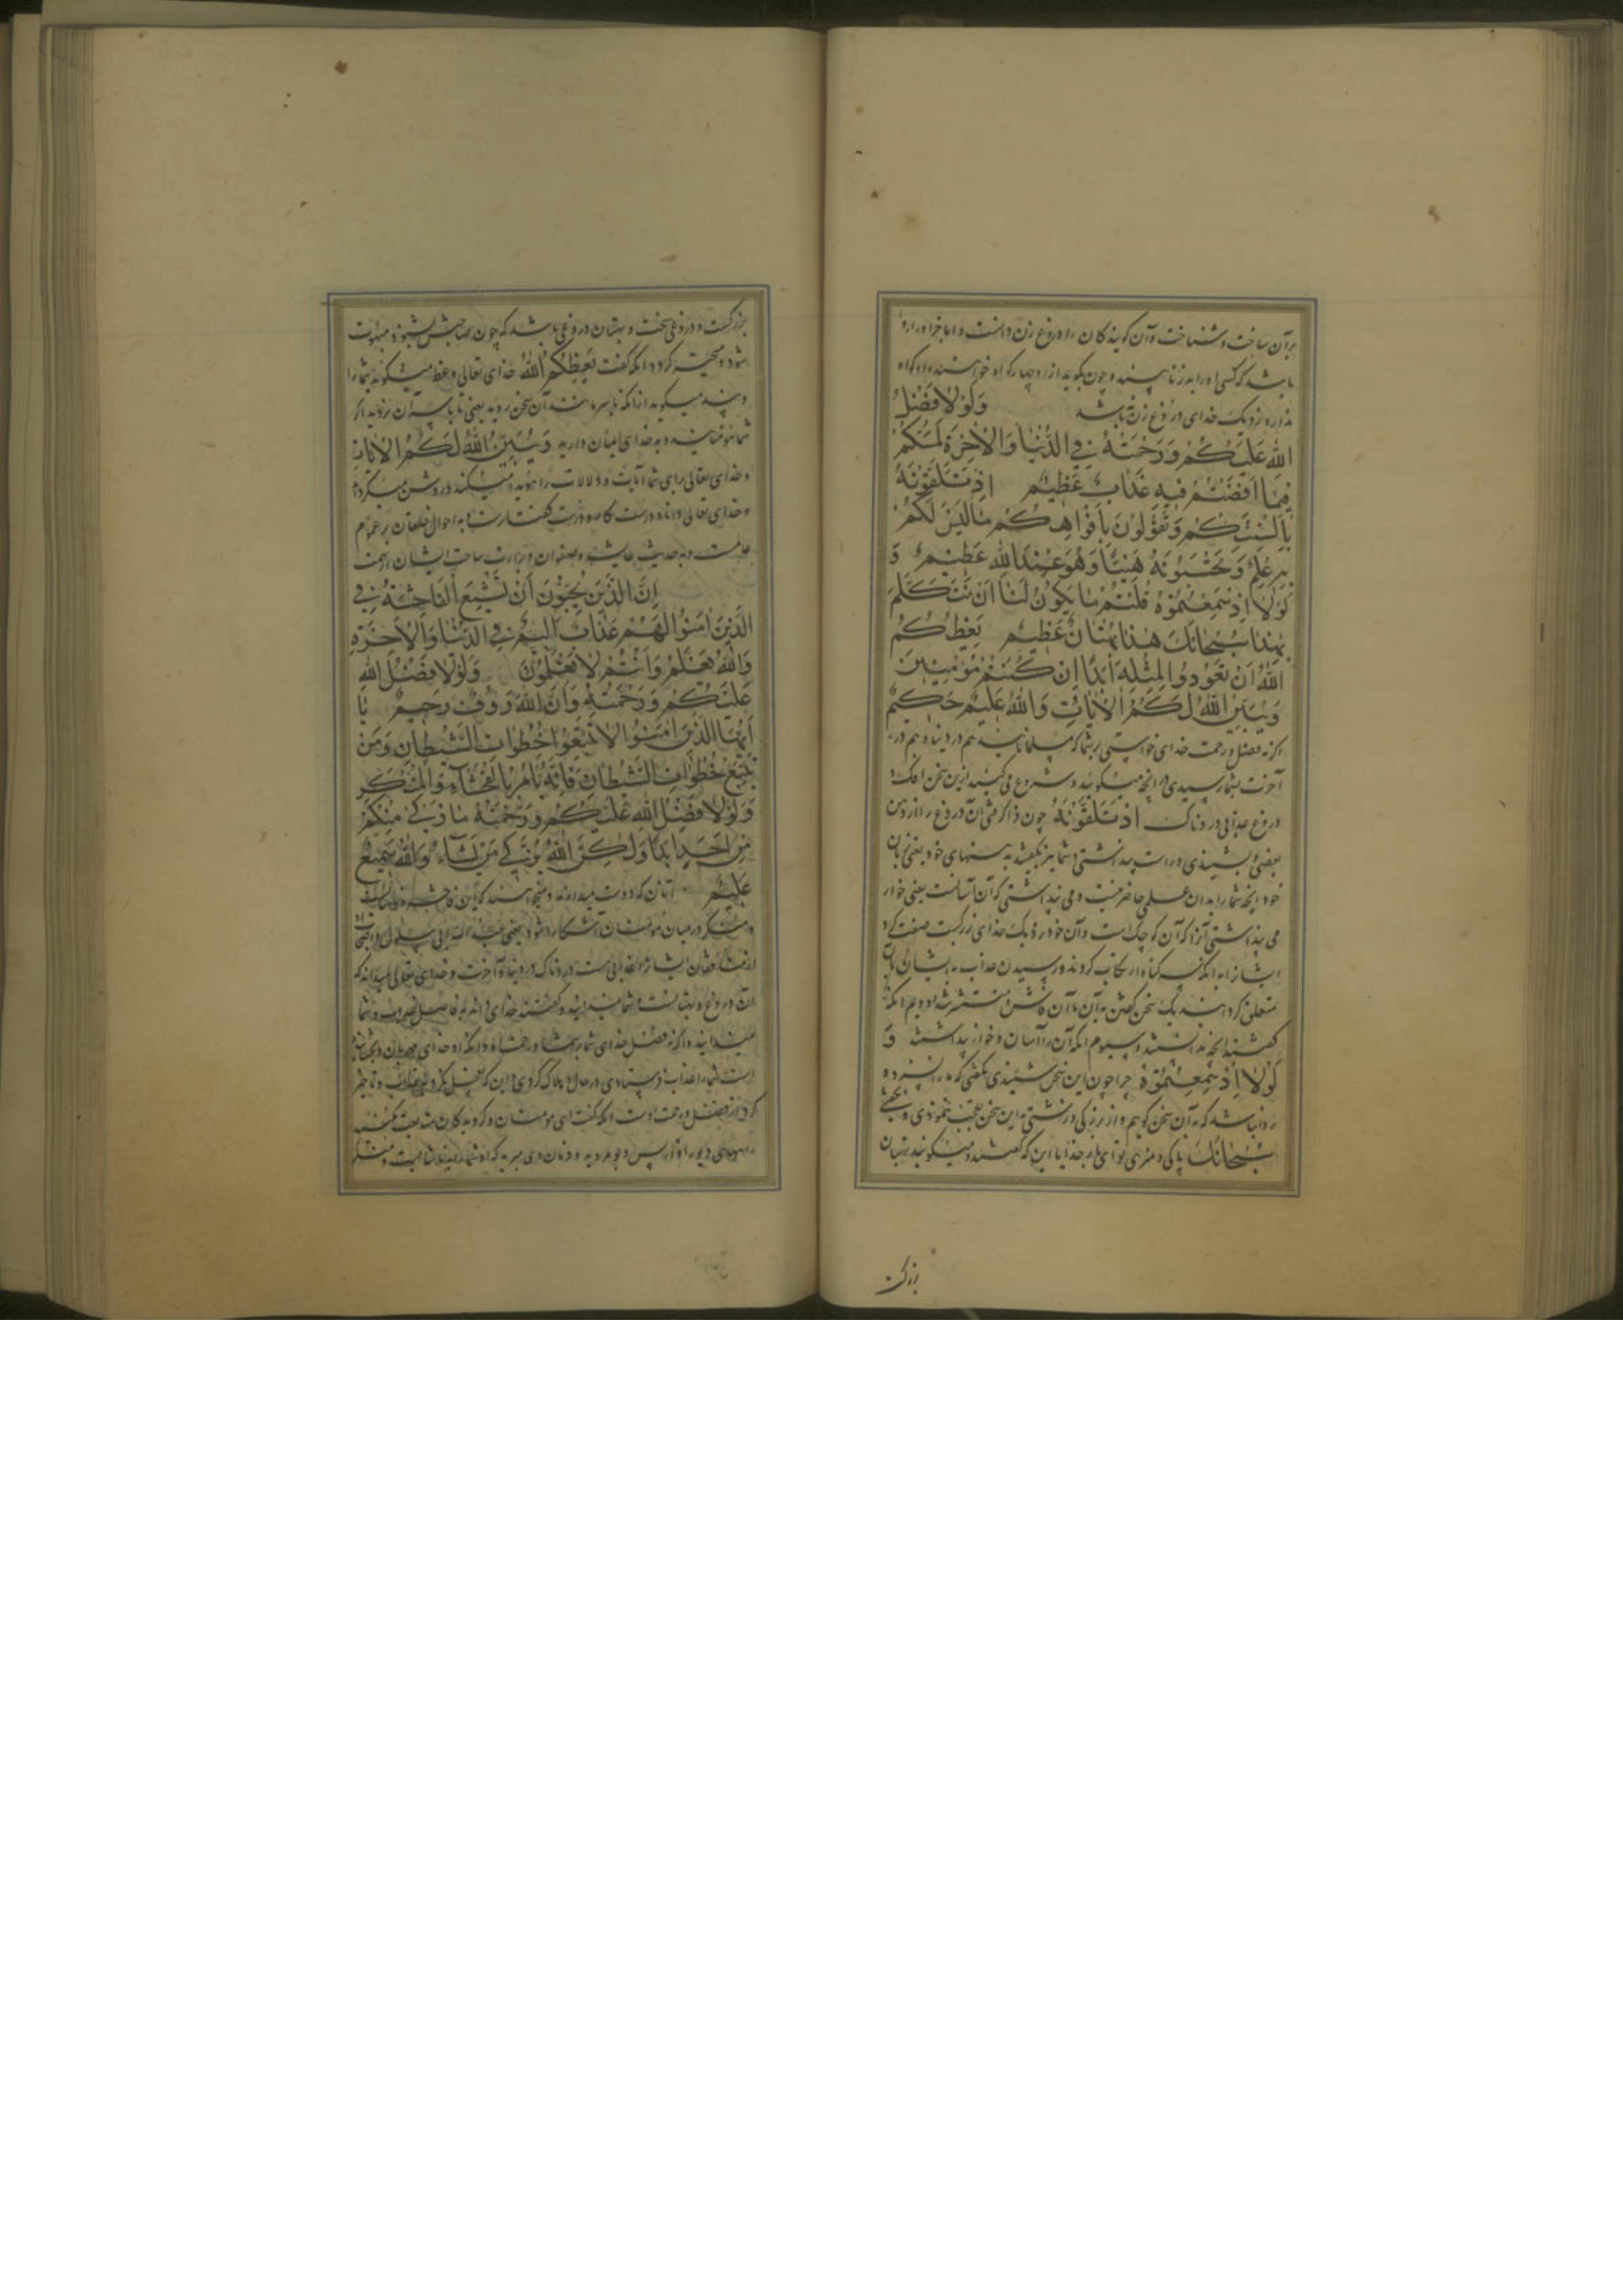 بر آن ساخت و شناخت و آن گویندکان را دروغ زن دانست و اما
باشد که کسی را و چون بگوید از او چهار کواه خواهند و او کواه
ندارد نزدیک خدای دروغ زن باشد وَلَوْلَا فَضْلُ
اللهِ عَلَيْكُمْ وَرَحْمَتُهُ فِي الدُّنْيَا وَالْآخِرَةِ لَمَسَّكُمْ
فِيمَا أَفَضْتُمْ فِيهِ عَذَابٌ عَظِيمٌ إِذْ تَلَقَّوْنَهُ
بِأَلْسِنَتِكُمْ وَتَقُولُونَ بِأَفْوَاهِكُمْ مَا لَيْسَ لَكُمْ
بِهِ عِلْمٌ وَتَحْسَبُونَهُ هَيِّنًا وَهُوَ عِنْدَ اللهِ عَظِيمٌ وَ
لَوْلَا إِذْ سَمِعْتُمُوهُ قُلْتُمْ مَا يَكُونُ لَنَا أَنْ نَتَكَلَّمَ
بِهَذَا سُبْحَانَكَ هَذَا بُهْتَانٌ عَظِيمٌ يَعِظُكُمُ
اللهُ أَنْ تَعُودُوا لِمِثْلِهِ أَبَدًا إِنْ كُنْتُمْ مُؤْمِنِينَ
وَيُبَيِّنُ اللهُ لَكُمُ الْآيَاتِ وَاللهُ عَلِيمٌ حَكِيمٌ
اگر نه فضل و رحمت خدای خواستی بر شما که مسلمانانید هم در دنیا و هم در
آخرت بشما رسیدی در انچه میگویید و شروع می کنید ازین سخن افک و
دروغ عذابی دردناک إِذْ تَلَقَّوْنَهُ چون فرا گرفتی آن دروغ را از دهن
بعضی و بشنیدی و راست پنداشتی و شما نیز بگفتید خود یعنی بزبان
خود انچه شما را بدان علمی حاضر نیست و می پنداشتی که آن آسانست یعنی خوار
می پنداشتی آنرا که آن کوچک است و آن خود نزدیک خدای بزرگست صفت کرد
ایشانرا به انکه سه کناه ارتکاب کردند و رسیدن عذاب به ایشان بآن
متعلق کردانید یک سخن گفتن به آن تا آن فاش و منتشر شد و دویم انکه
گفتند انچه ندانستند و سیوم انکه آن را آسان و خوار پنداشتند وَ
لَوْلَا إِذْ سَمِعْتُمُوهُ چرا چون این سخن شنیدی نگفتی که ما را نرسد و
روا نباشد که به آن سخن گوییم و از بزرگی و زشتی این سخن تعجب ننمودی و نگفتی
سُبْحَانَكَ پاکی و منزهی تو ای بار خدایا این که گفتند و میگویند بهتان
بزرگست
بزرگست و دروغی سخت و بهتان دروغی باشد که چون صاحبش بشنود مبهوت
شود و متحیر گردد انکه گفت يَعِظُكُمُ اللهُ خدای تعالی وعظ میگوید شما را
و پند میگوید از انکه با سر مانند آن سخن روید یعنی تا باسر آن نروید اگر
شما مؤمنانید و به خدای ایمان دارید وَيُبَيِّنُ اللهُ لَكُمُ الْآيَاتِ
و خدای تعالی برای شما آیات و دلالات را هویدا میکند و روشن میگرداند
و خدای تعالی دانا و درست کار و درست گفتارست به احوال خلقان بر عموم
عالمست و به حدیث عایشه و صفوان و براءت ساحت ایشان از تهمت
إِنَّ الَّذِينَ يُحِبُّونَ أَنْ تَشِيعَ الْفَاحِشَةُ فِي
الَّذِينَ آمَنُوا لَهُمْ عَذَابٌ أَلِيمٌ فِي الدُّنْيَا وَالْآخِرَةِ
وَاللهُ يَعْلَمُ وَأَنْتُمْ لَا تَعْلَمُونَ وَلَوْلَا فَضْلُ اللهِ
عَلَيْكُمْ وَرَحْمَتُهُ وَأَنَّ اللهَ رَءُوفٌ رَحِيمٌ يَا
أَيُّهَا الَّذِينَ آمَنُوا لَا تَتَّبِعُوا خُطُوَاتِ الشَّيْطَانِ وَمَنْ
يَتَّبِعْ خُطُوَاتِ الشَّيْطَانِ فَإِنَّهُ يَأْمُرُ بِالْفَحْشَاءِ وَالْمُنْكَرِ
وَلَوْلَا فَضْلُ اللهِ عَلَيْكُمْ وَرَحْمَتُهُ مَا زَكَى مِنْكُمْ
مِنْ أَحَدٍ أَبَدًا وَلَكِنَّ اللهَ يُزَكِّي مَنْ يَشَاءُ وَاللهُ سَمِيعٌ
عَلِيمٌ آنان که دوست میدارند و میخواهند که این فاحشه
و منکر در میان مؤمنان آشکارا شود یعنی عبد الله ابی سلول و اصحاب او
از منافقان ایشانرا عذابی هست دردناک در دنیا و آخرت و خدای تعالی میداند که
آن دروغ و بهتانست و شما نمیدانید و گفتند خدای داند
نمیدانید و اگر نه فضل خدای شما و رحمت او و انکه او خدای مهربان و بخشاینده
است شما را عذاب فرستادی و در حال هلاک کردی و این که تعجیل نکرد به عذاب و تاخیر
کرد از فضل و رحمت اوست انکه گفت ای مؤمنان و گرویدگان متابعت مکنید
راههای دیو را و از پس دیو مروید و فرمان وی مبرید که او شما را